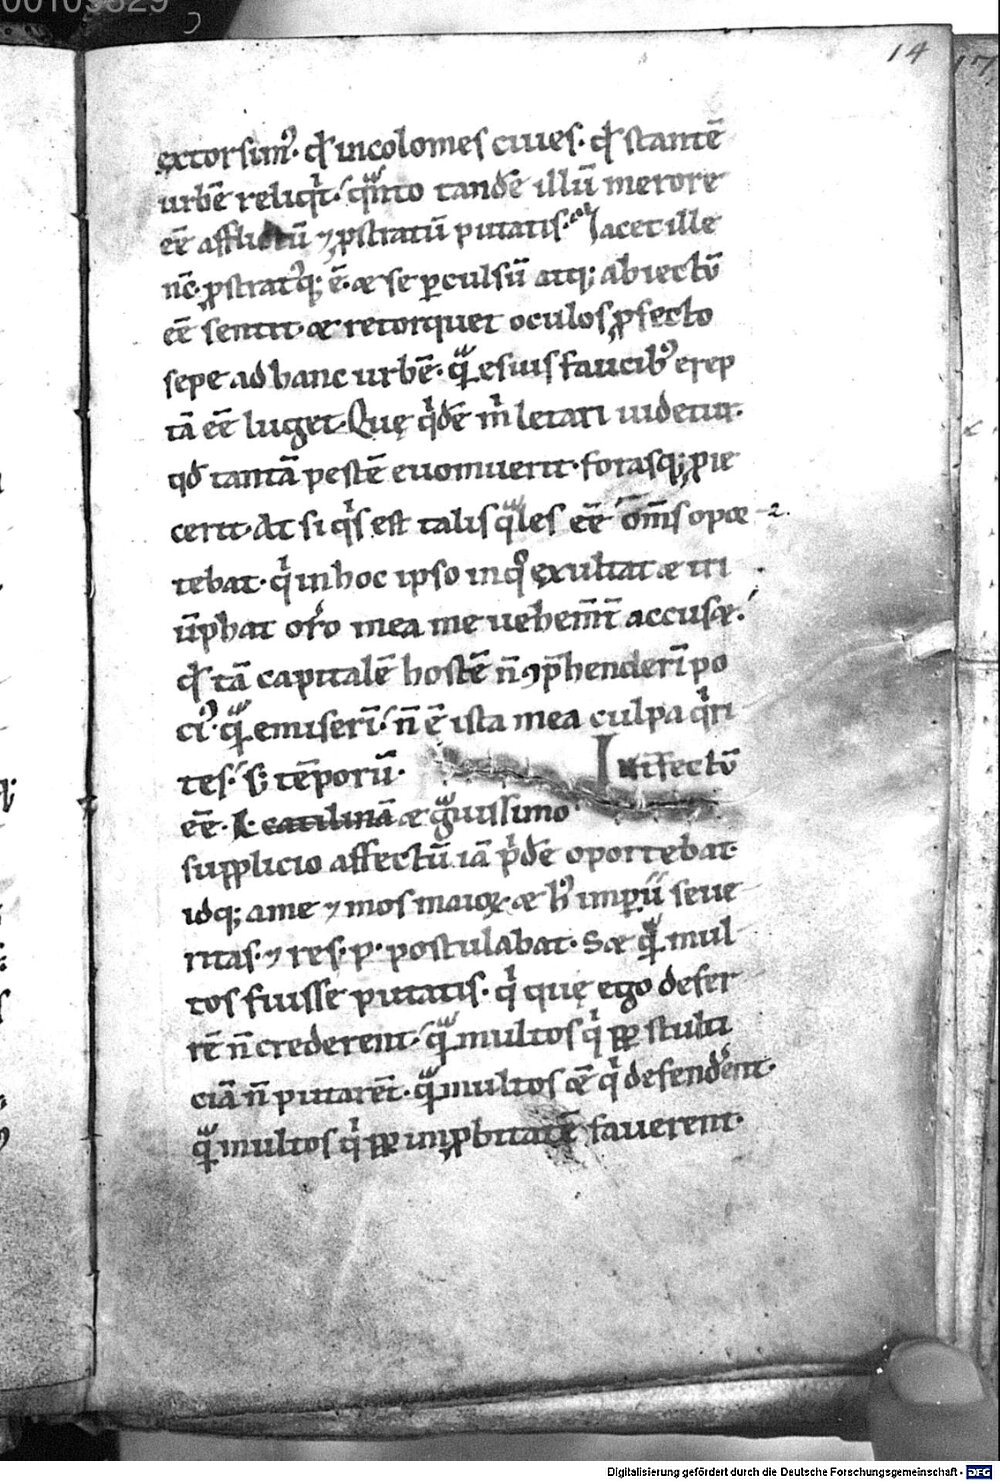 00109829
14
17
extorsim᷒· qđ incolomes ciues· qđ stantē
urbē reliq̇t· qͣnto tandē illū merore
eē afflictū ⁊ ꝓstratū putatis· Jacet ille
nc̄ ꝓstratq᷒; ē· æ se ꝑculsū atq; abiectū
eē sentit· æ retorquet oculos ꝓfecto
sepe ad hanc urbē· qͣ̄ e suis faucib᷒ erep
tā eē luget· Quę qͥdē m̄ letari uidetur·
qđ tantā pestē euomuerit· forasq; ꝓie
cerit· At si qͥs est talis qͣles eē om̄s opoe
tebat· qͥ in hoc ipso in qͦ exultat æ tri
ūphat or̄o mea me uehem̄t accusæ·
qđ tā capitalē hostē n̄ ꝯp̄henderī po
ci᷒· qͣ̄ emiserī· n̄ ē ista mea culpa qͥri
tes· s; tēporū· Intfectū
eē· L· catilinā æ gͣuissimo
supplicio affectū iā p̄dē oportebat·
idq; a me ⁊ mos maioꝝ· æ h᷒ imꝑii seue
ritas· ⁊ res· p· postulabat· Sæ qͣ̄ mul
tos fuisse putatis· qͥ quę ego defer
rē n̄ crederent· qͣ̄ multos qͥ ꝓp̄ stulti
ciā n̄ putarēt· qͣ̄ multos ǣ qͥ defenderent·
qͣ̄ multos qͥ ꝓp̄ imꝓbitatē fauerent·
Digitalisierung gefördert durch die Deutsche Forschungsgemeinschaft - DFG